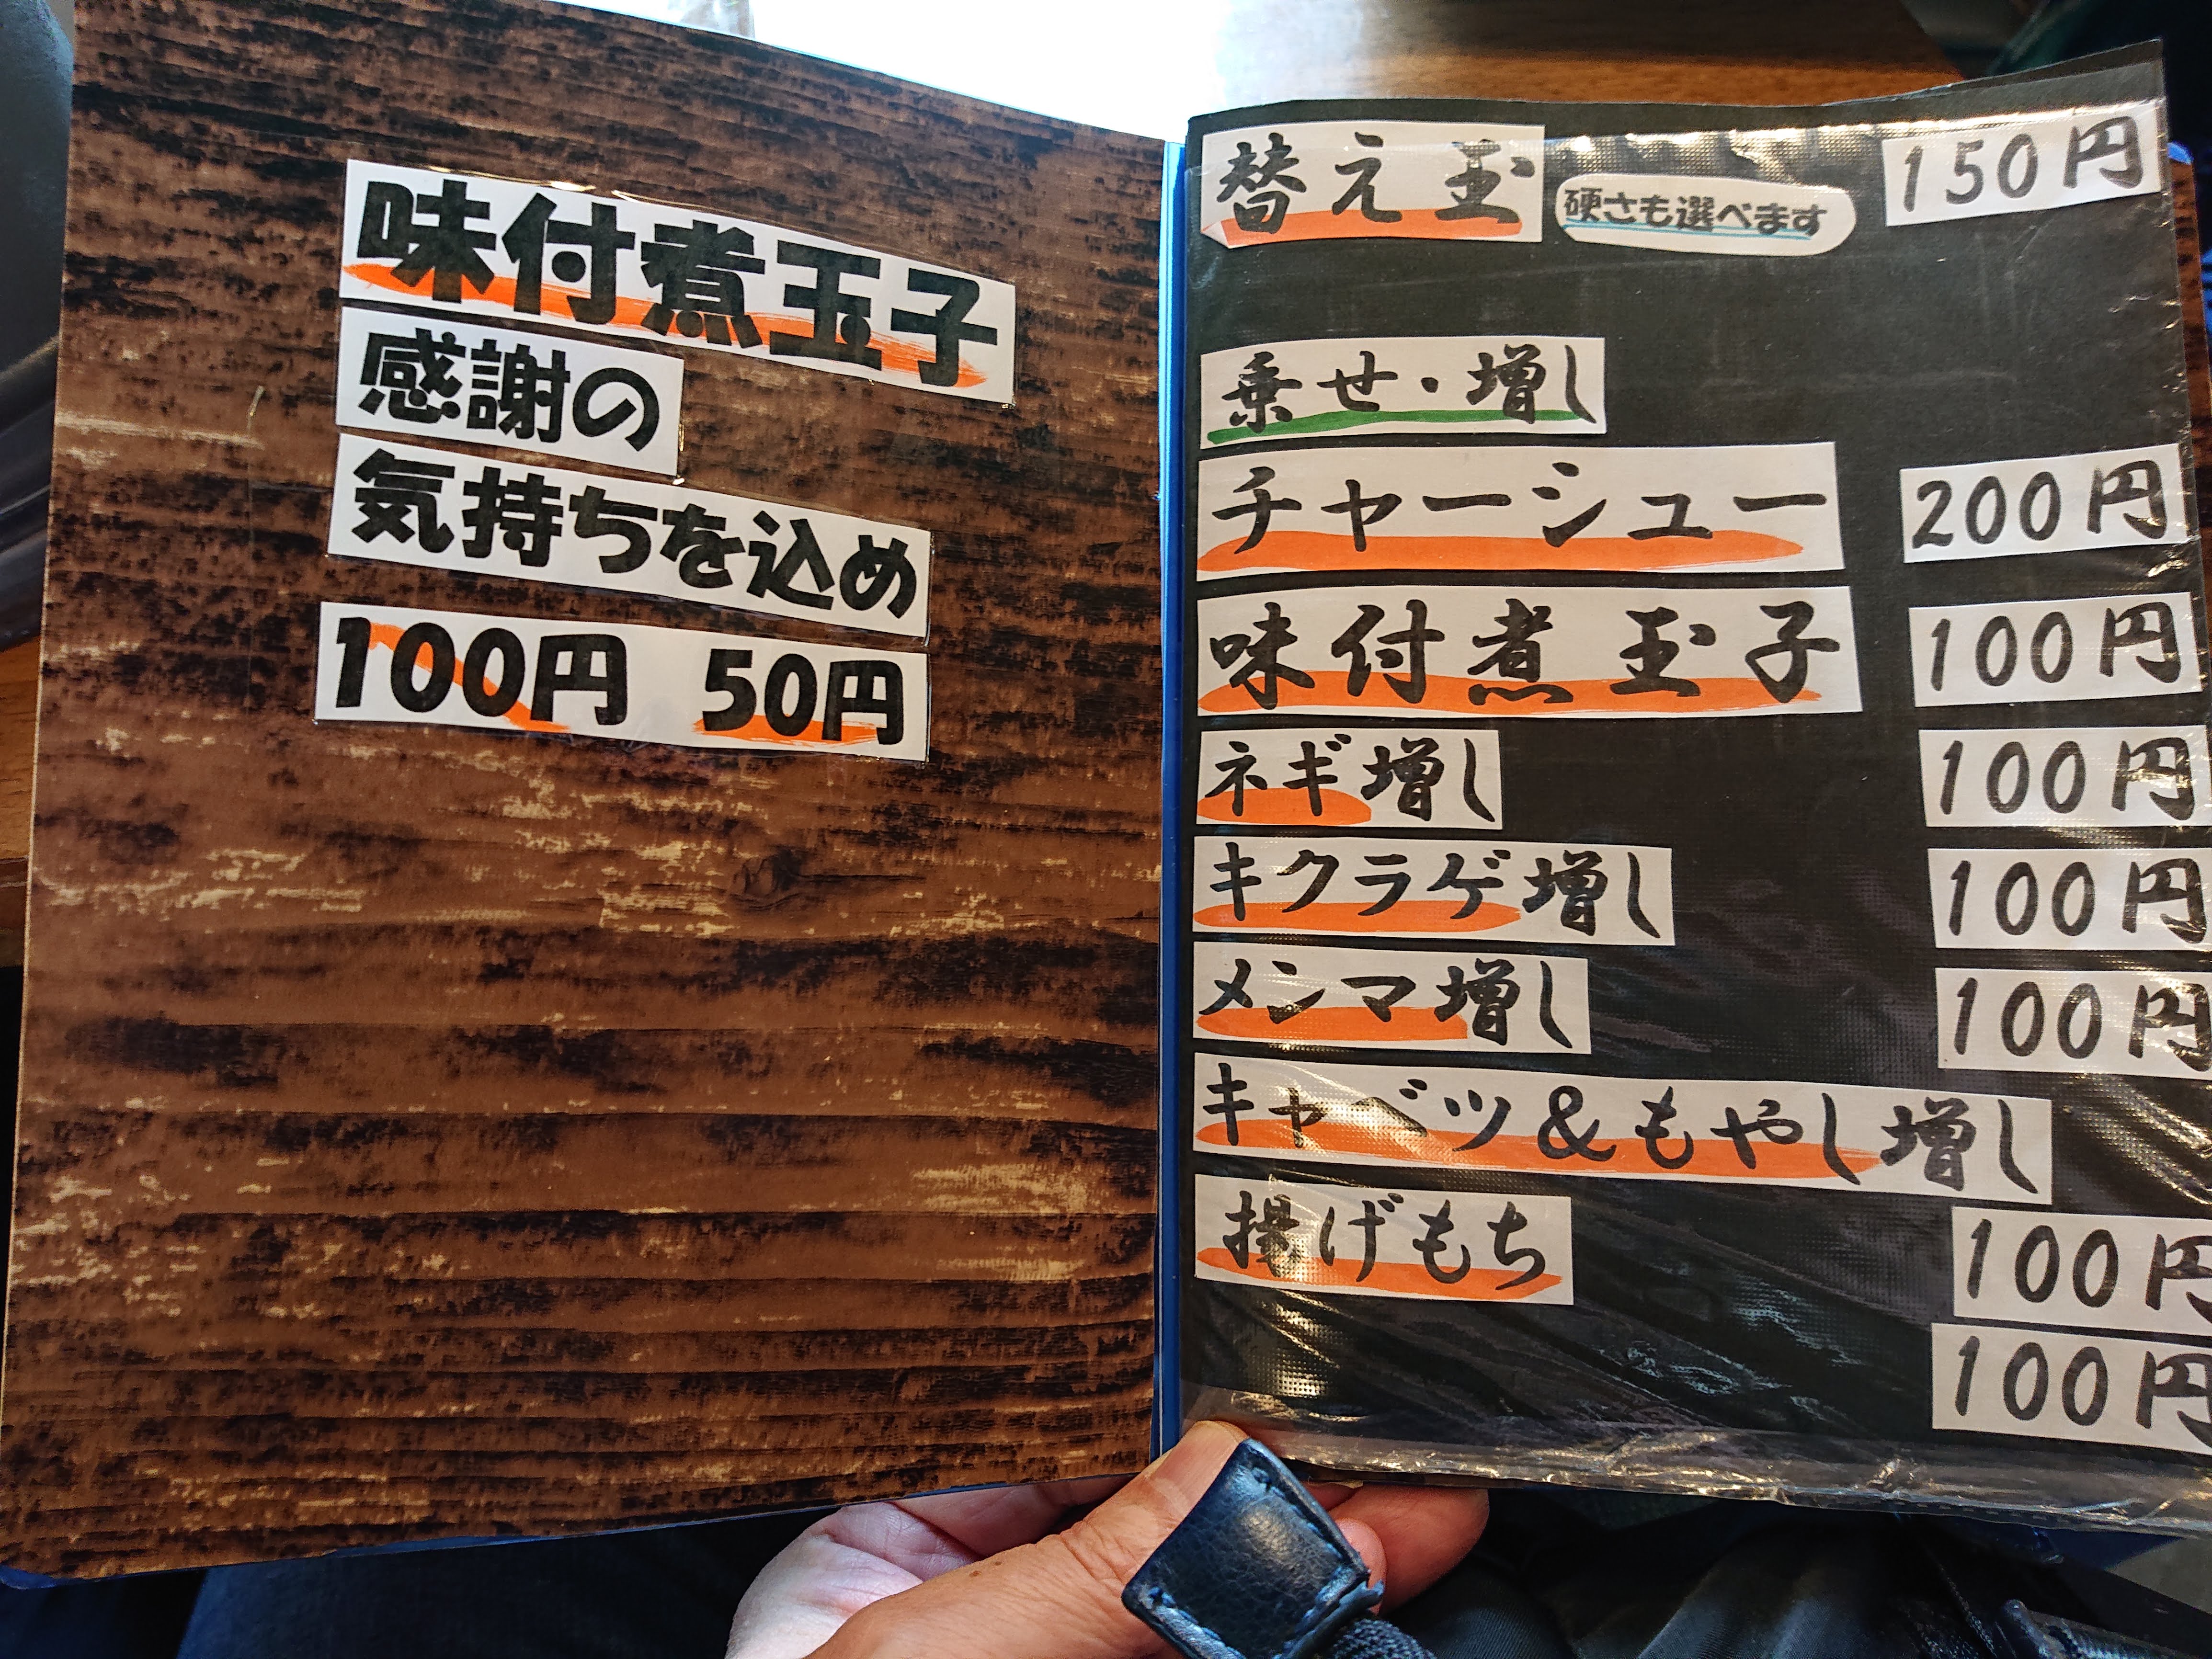 味付煮玉子
感謝の
気持ちを込め
100円 50円
替え玉 硬さも選べます 150円
乗せ・増し
チャーシュー 200円
味付煮玉子 100円
ネギ増し 100円
キクラゲ増し 100円
メンマ増し 100円
キャベツ&もやし増し 100円
揚げもち 100円